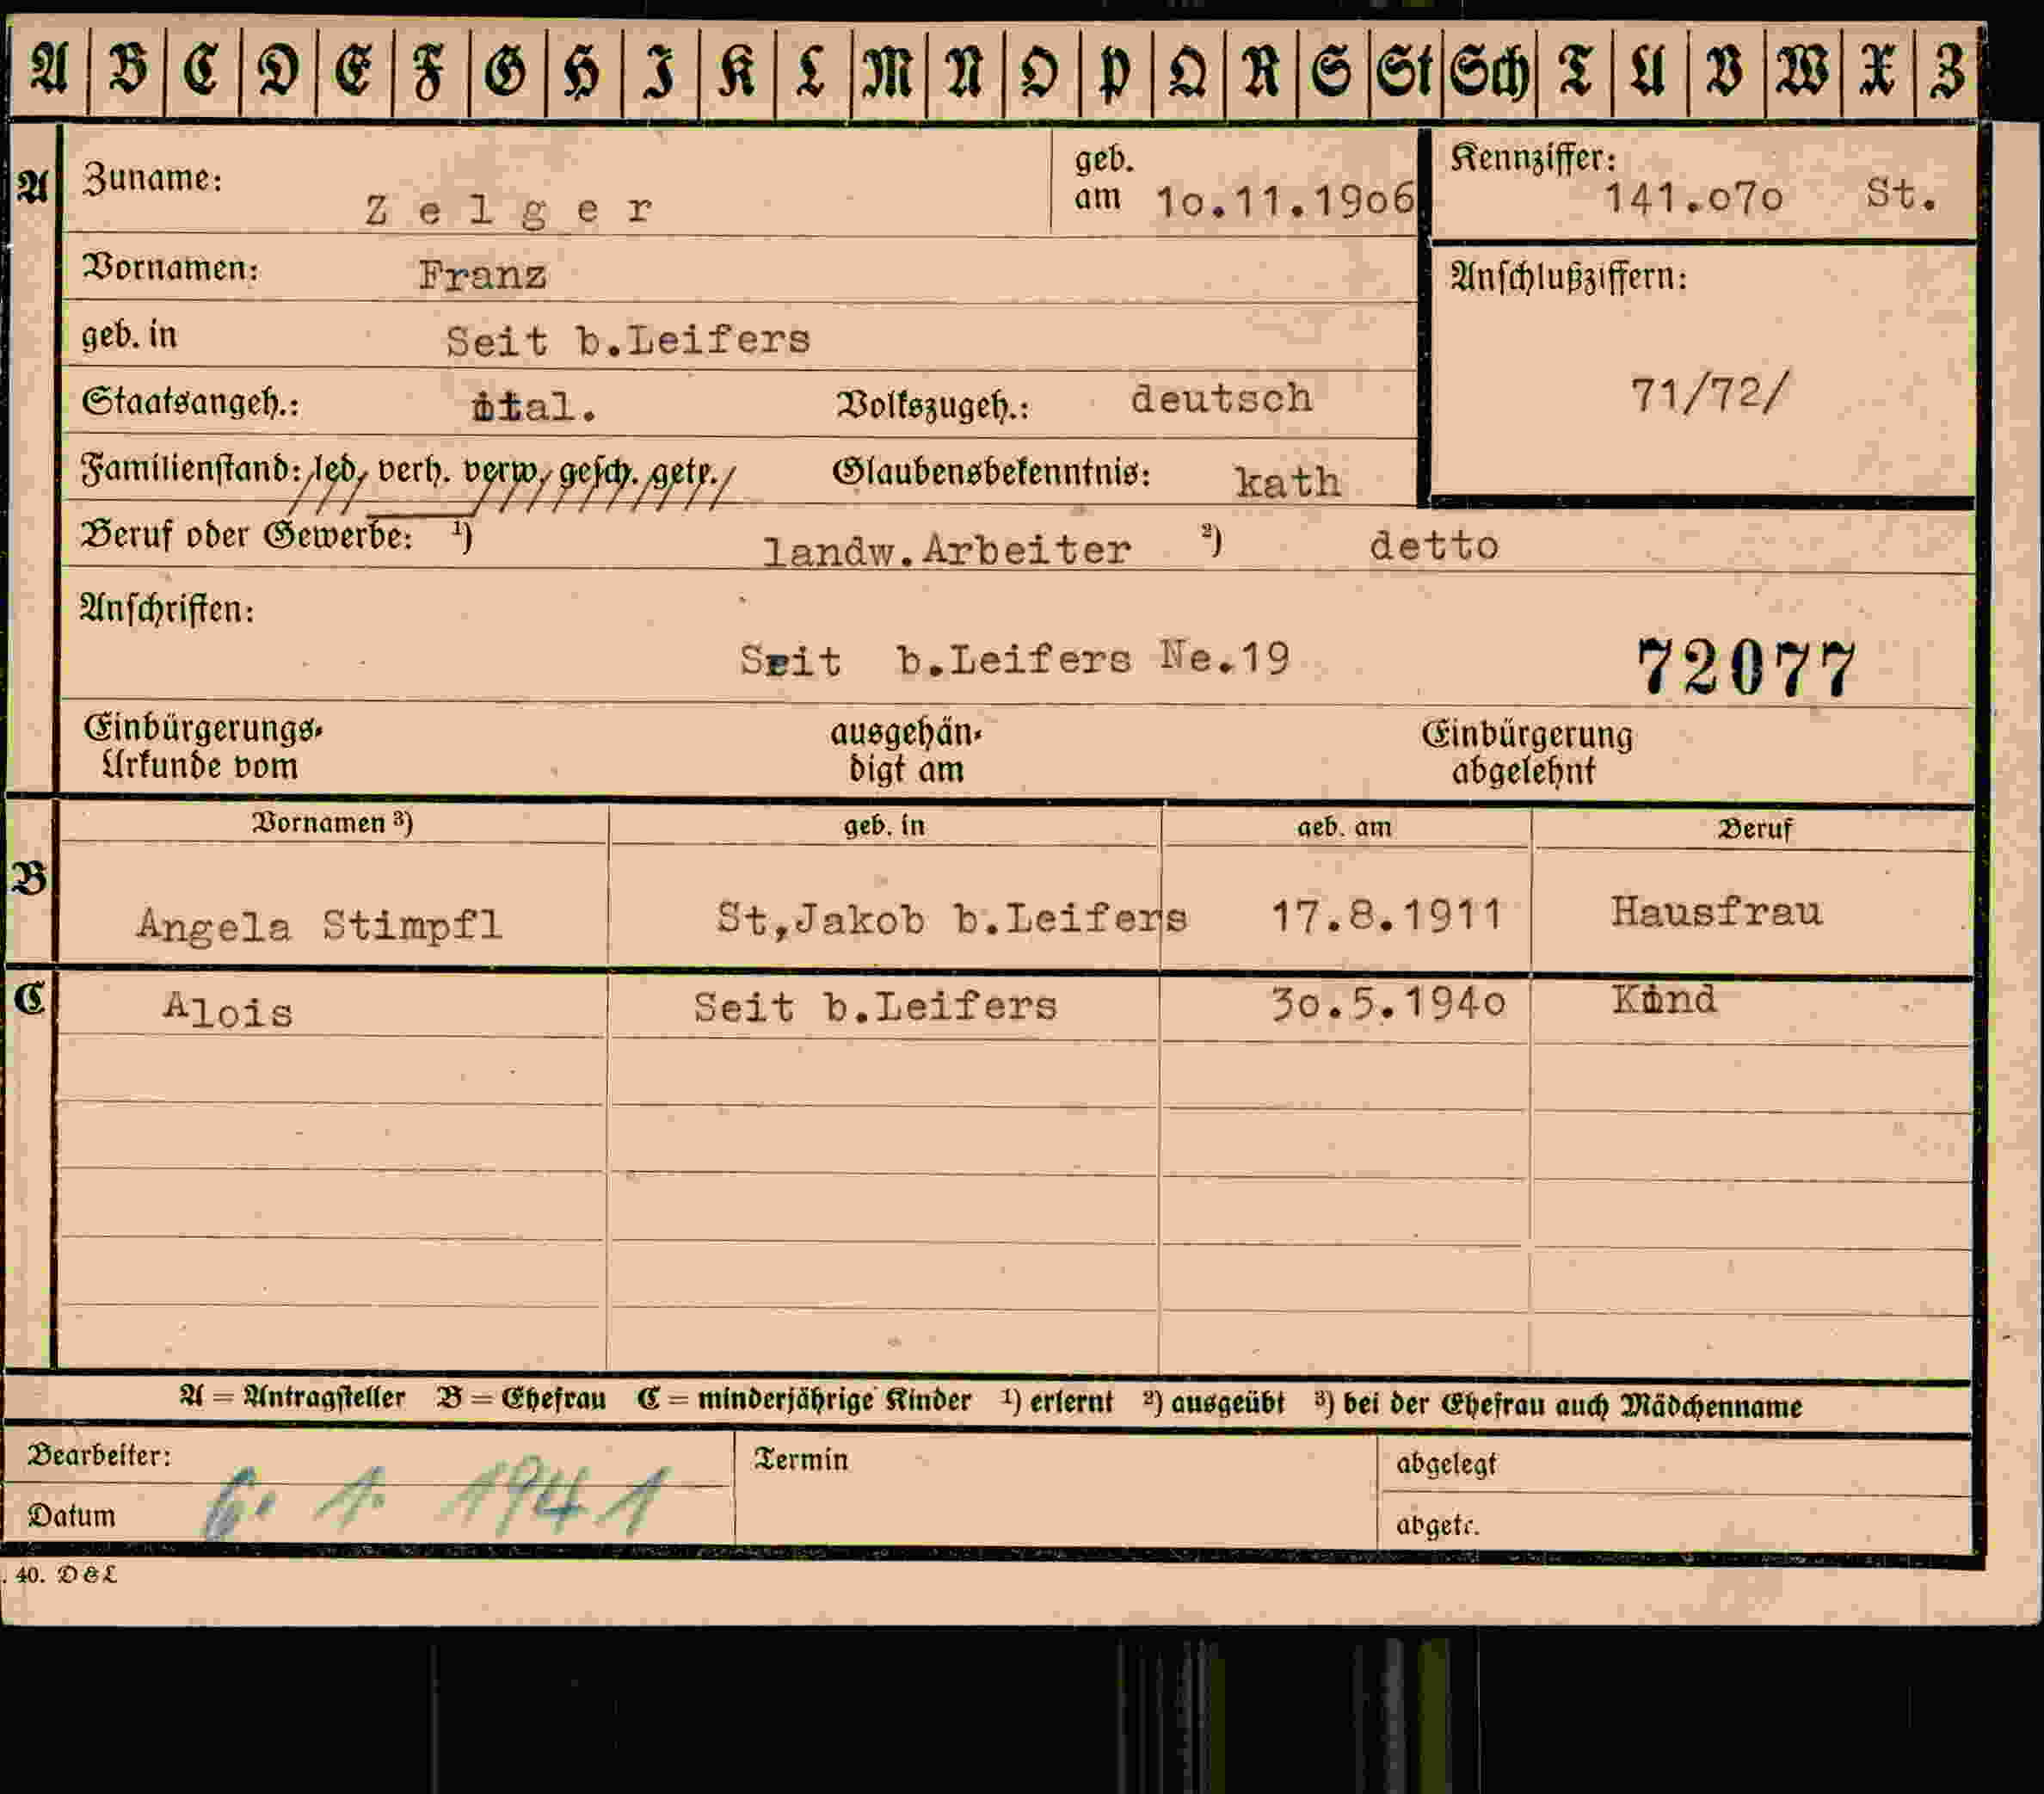 A B C D E F G H I K L M N O P Q R S St Sch T U V W X Z
A Zuname: Zelger geb. am 10.11.1906 Kennziffer: 141.070 St.
Vornamen: Franz Anschlußziffern:
geb. in Seit b.Leifers
Staatsangeh.: ital. Volkszugeh.: deutsch 71/72/
Familienstand: led. verh. verw. gesch. getr. Glaubensbekenntnis: kath
Beruf oder Gewerbe: ¹) landw.Arbeiter ²) detto
Anschriften:
Seit b.Leifers Ne.19 72077
Einbürgerungs- ausgehän- Einbürgerung
Urkunde vom digt am abgelehnt
Vornamen ³) geb. in geb. am Beruf
B Angela Stimpfl St,Jakob b.Leifers 17.8.1911 Hausfrau
C Alois Seit b.Leifers 30.5.1940 Kind
A = Antragsteller B = Ehefrau C = minderjährige Kinder ¹) erlernt ²) ausgeübt ³) bei der Ehefrau auch Mädchenname
Bearbeiter: Termin abgelegt
Datum 6. 1. 1941 abgetr.
. 40. D&L